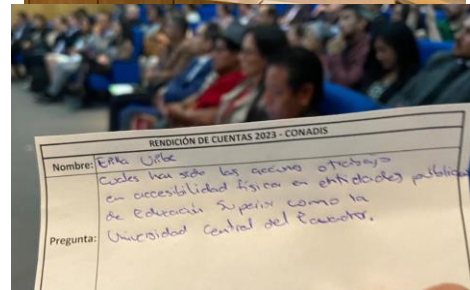 RENDICIÓN DE CUENTAS 2023 - CONADIS
Nombre: Erika Uribe
Cuáles han sido las acciones o trabajo
en accesibilidad física en entidades públicas
de educación Superior como la
Pregunta: Universidad Central del Ecuador.